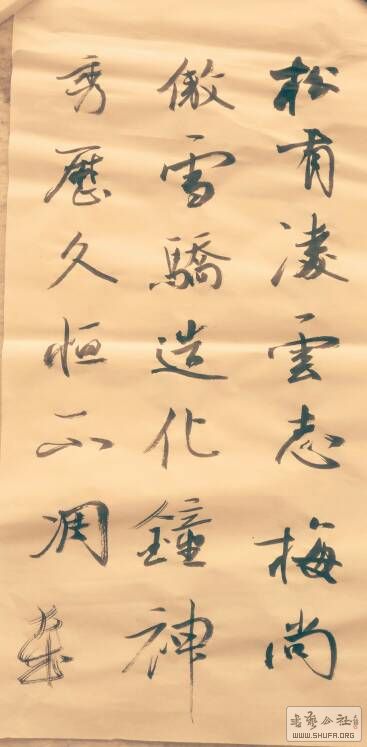 松有凌雲志梅尚
傲雪驕造化鐘神
秀歷久恒不凋
书艺公社
WWW.SHUFA.ORG